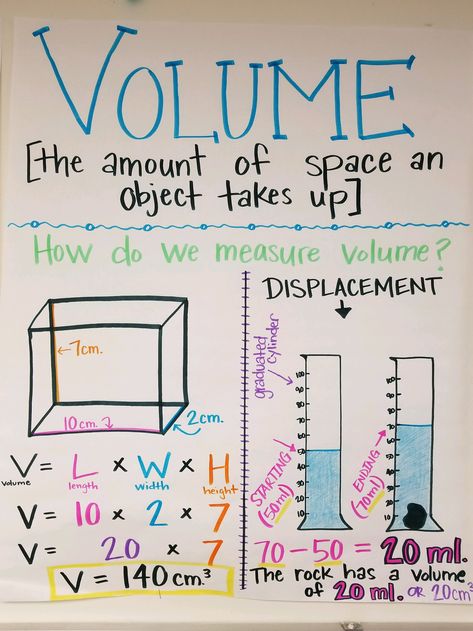 VOLUME
[the amount of space an
object takes up]
How do we measure volume?
←7cm.
10cm.
2cm.
V = L × W × H
volume length width height
V = 10 × 2 × 7
V = 20 × 7
V = 140 cm.³
DISPLACEMENT
graduated
cylinder
100
90
80
70
60
50
40
30
20
10
STARTING
(50ml)
100
90
80
70
60
50
40
30
20
10
ENDING
(70ml)
70 - 50 = 20 ml.
The rock has a volume
of 20 ml. OR 20cm³